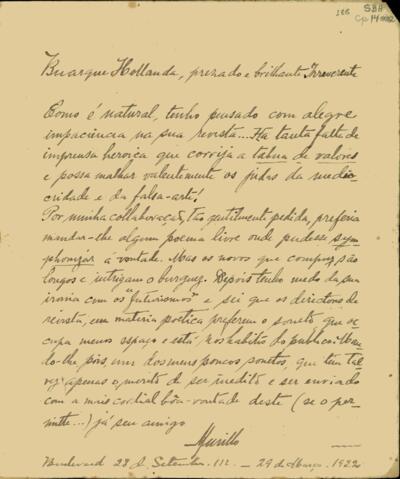 188
SBH
Cp 14
Buarque Hollanda, presado e brilhante Irreverente
Como é natural, tenho pensado com alegre
impaciencia na sua revista... Ha tanta falta de
imprensa heroica que corrija a tabua de valores
e possa malhar valentemente os judas da medio-
cridade e da falsa-arte!
Por minha collaboração, tão gentilmente pedida, preferia
mandar-lhe algum poema livre onde pudesse sym-
phonizar á vontade. Mas os novos que compuz são
longos e intrigam o burguez. Depois tenho medo da sua
ironia com os "futurismos" e sei que os directores de
revista, em materia poetica preferem o soneto, que oc-
cupa menos espaço e está nos habitos do publico. Man-
do-lhe pois, um dos meus poucos sonetos, que tem tal-
vez apenas o merito de ser inedito e ser enviado
com a mais cordial bôa-vontade deste (se o per-
mitte...) já seu amigo
Murillo
Boulevard 28 de Setembro. 111. — 29 de Março, 1922